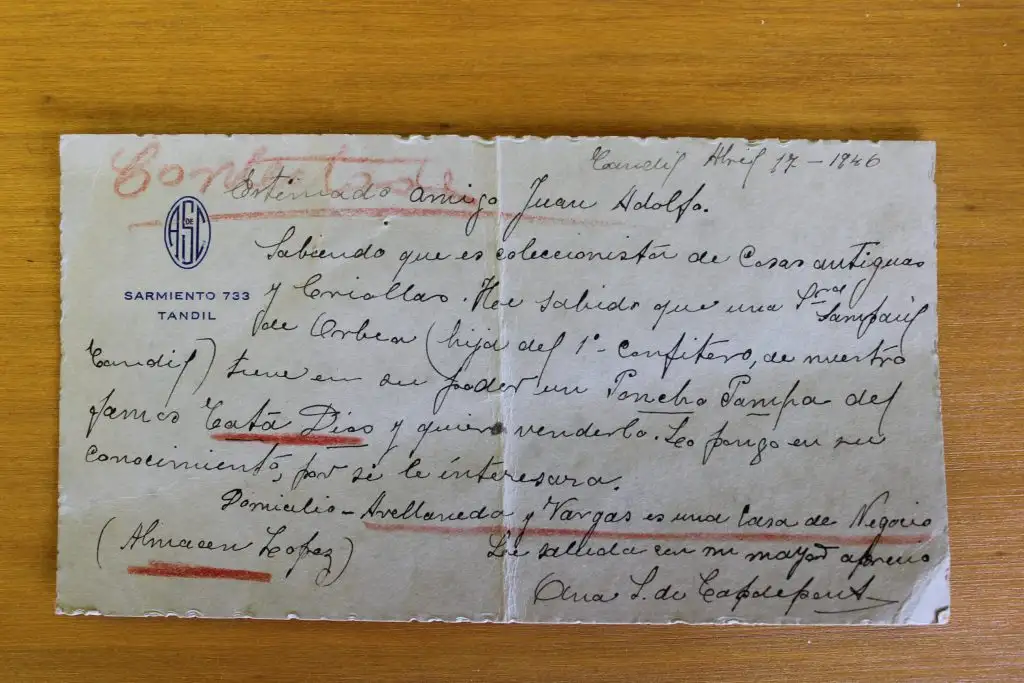 Tandil Abril 17 - 1946
Contestada
Estimado amigo Juan Adolfo.
ASC
DE
SARMIENTO 733
TANDIL
Sabiendo que es coleccionista de Cosas antiguas
y Criollas. He sabido que una Sra
de Orbea (hija del 1º- Confitero, de nuestro
Tandil) tiene en su poder un Poncho Pampa del
famos Tatá Dios y quiere venderlo. Lo pongo en su
Conocimiento, por si le interesara.
Domicilio - Avellaneda y Vargas es una Casa de Negocio
(Almacen Lopez)
Lo saluda con mi mayor aprecio
Ana S. de Capdepont